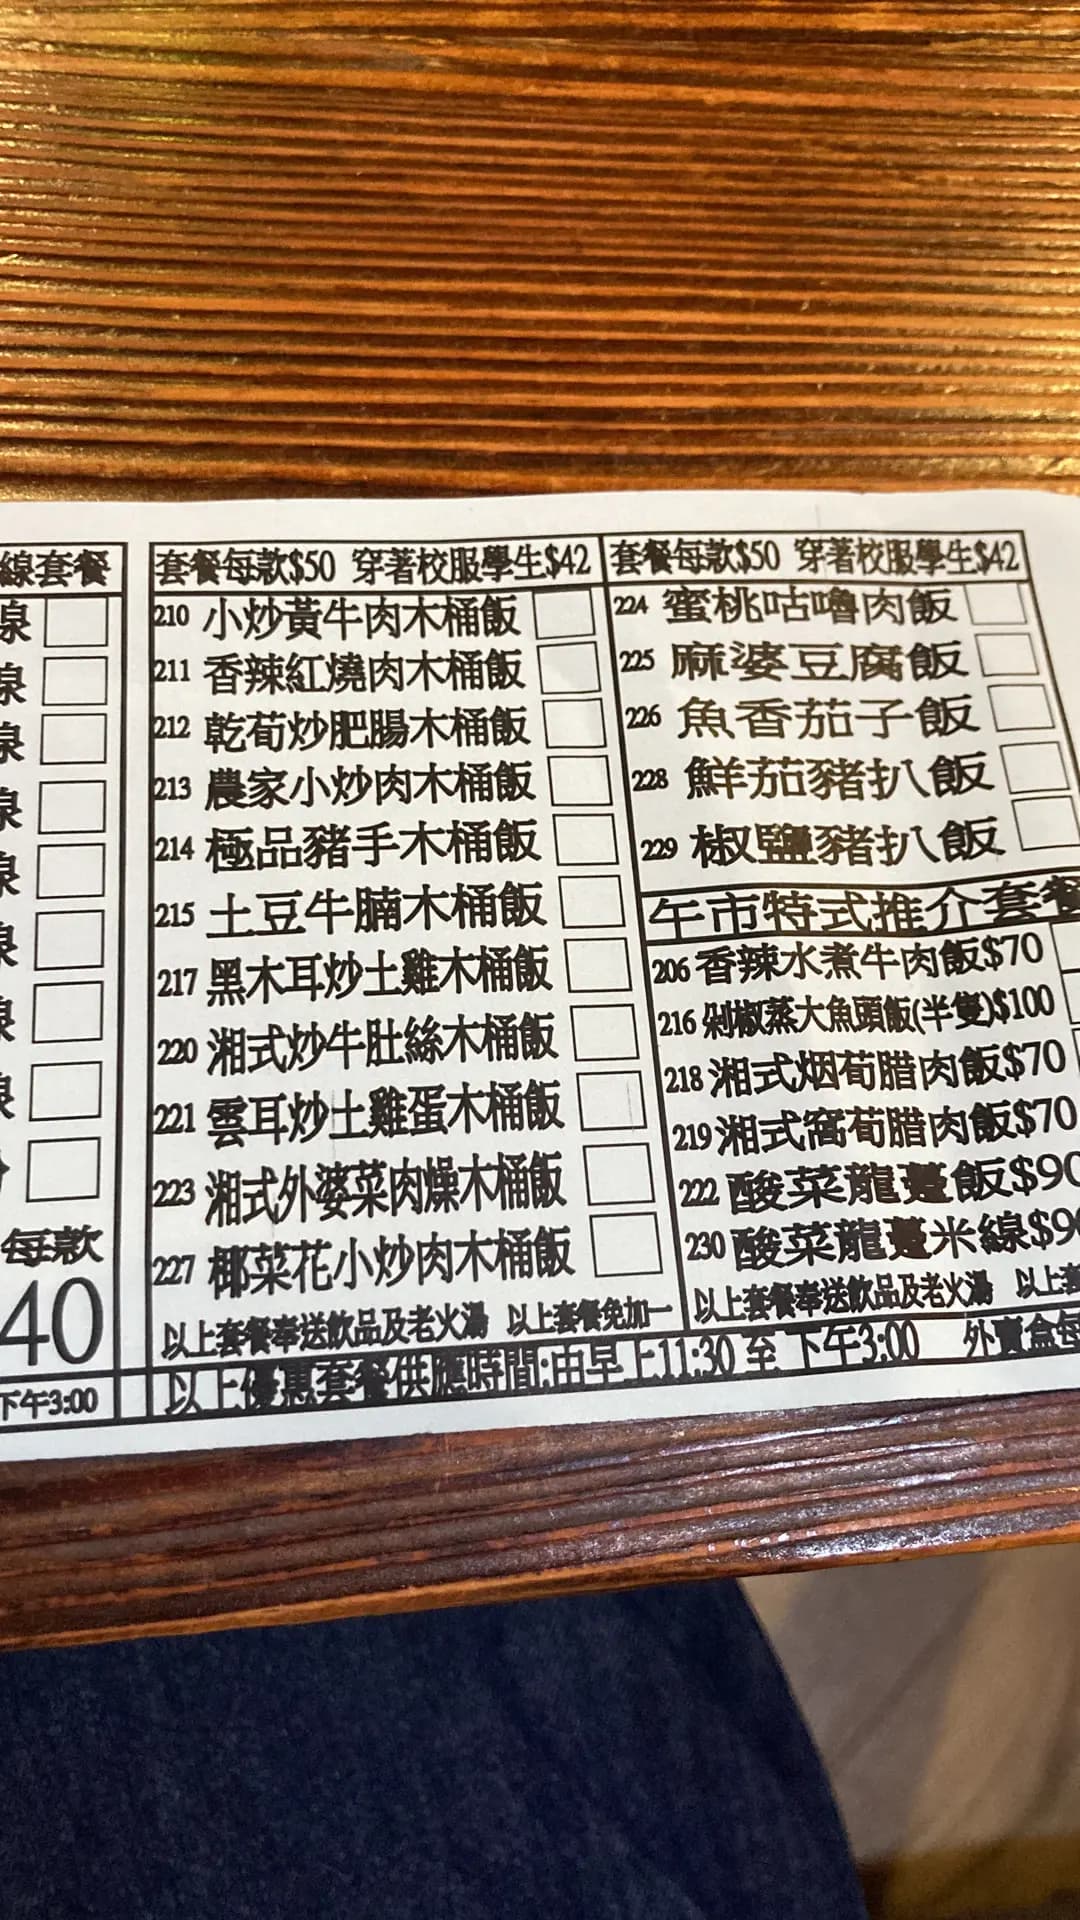 線套餐
線
線
線
線
線
線
線
線
每款
40
下午3:00
套餐每款$50 穿著校服學生$42
210 小炒黃牛肉木桶飯
211 香辣紅燒肉木桶飯
212 乾荀炒肥腸木桶飯
213 農家小炒肉木桶飯
214 極品豬手木桶飯
215 土豆牛腩木桶飯
217 黑木耳炒土雞木桶飯
220 湘式炒牛肚絲木桶飯
221 雲耳炒土雞蛋木桶飯
223 湘式外婆菜肉燥木桶飯
227 椰菜花小炒肉木桶飯
以上套餐奉送飲品及老火湯 以上套餐免加一
套餐每款$50 穿著校服學生$42
224 蜜桃咕嚕肉飯
225 麻婆豆腐飯
226 魚香茄子飯
228 鮮茄豬扒飯
229 椒鹽豬扒飯
午市特式推介套餐
206 香辣水煮牛肉飯$70
216 剁椒蒸大魚頭飯(半隻)$100
218 湘式烟荀腊肉飯$70
219 湘式窩荀腊肉飯$70
222 酸菜龍躉飯$90
230 酸菜龍躉米線$90
以上套餐奉送飲品及老火湯 以上套
以上優惠套餐供應時間:由早上11:30 至 下午3:00 外賣盒每